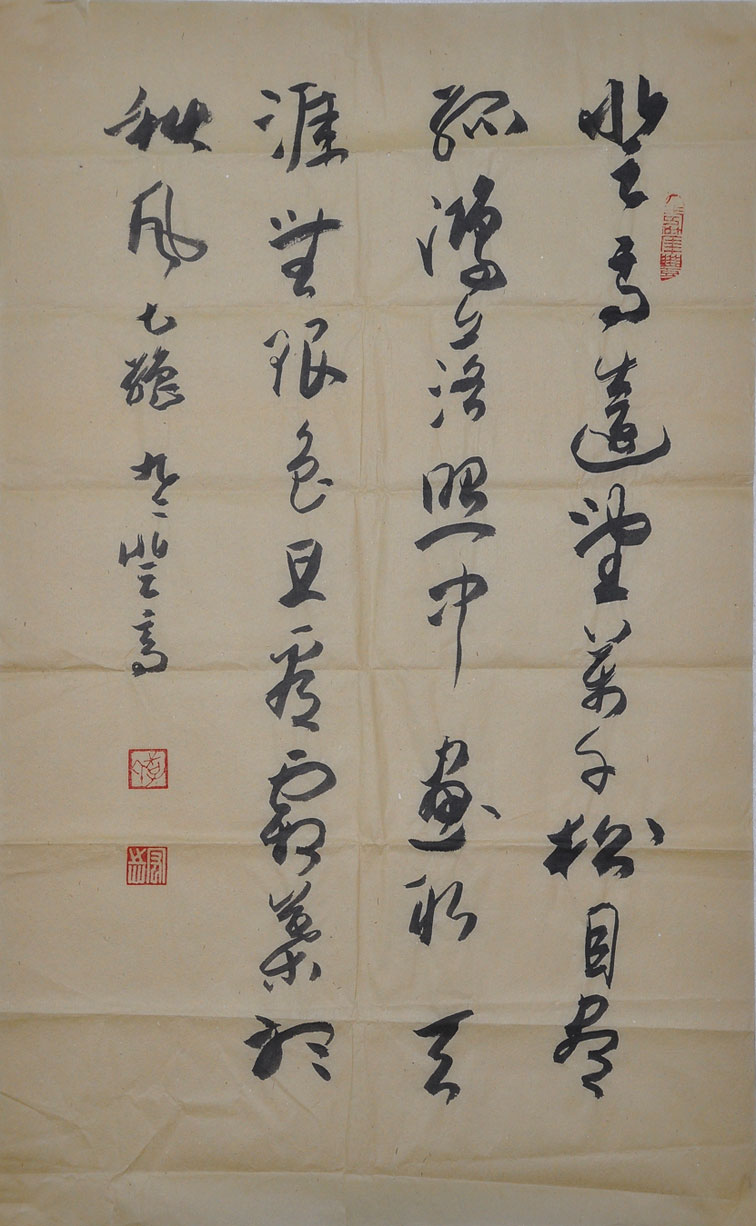 登高遠望萬千松目盡
孤鴻落照中畫取天
涯無限色且看霜葉
秋風七絕九二登高